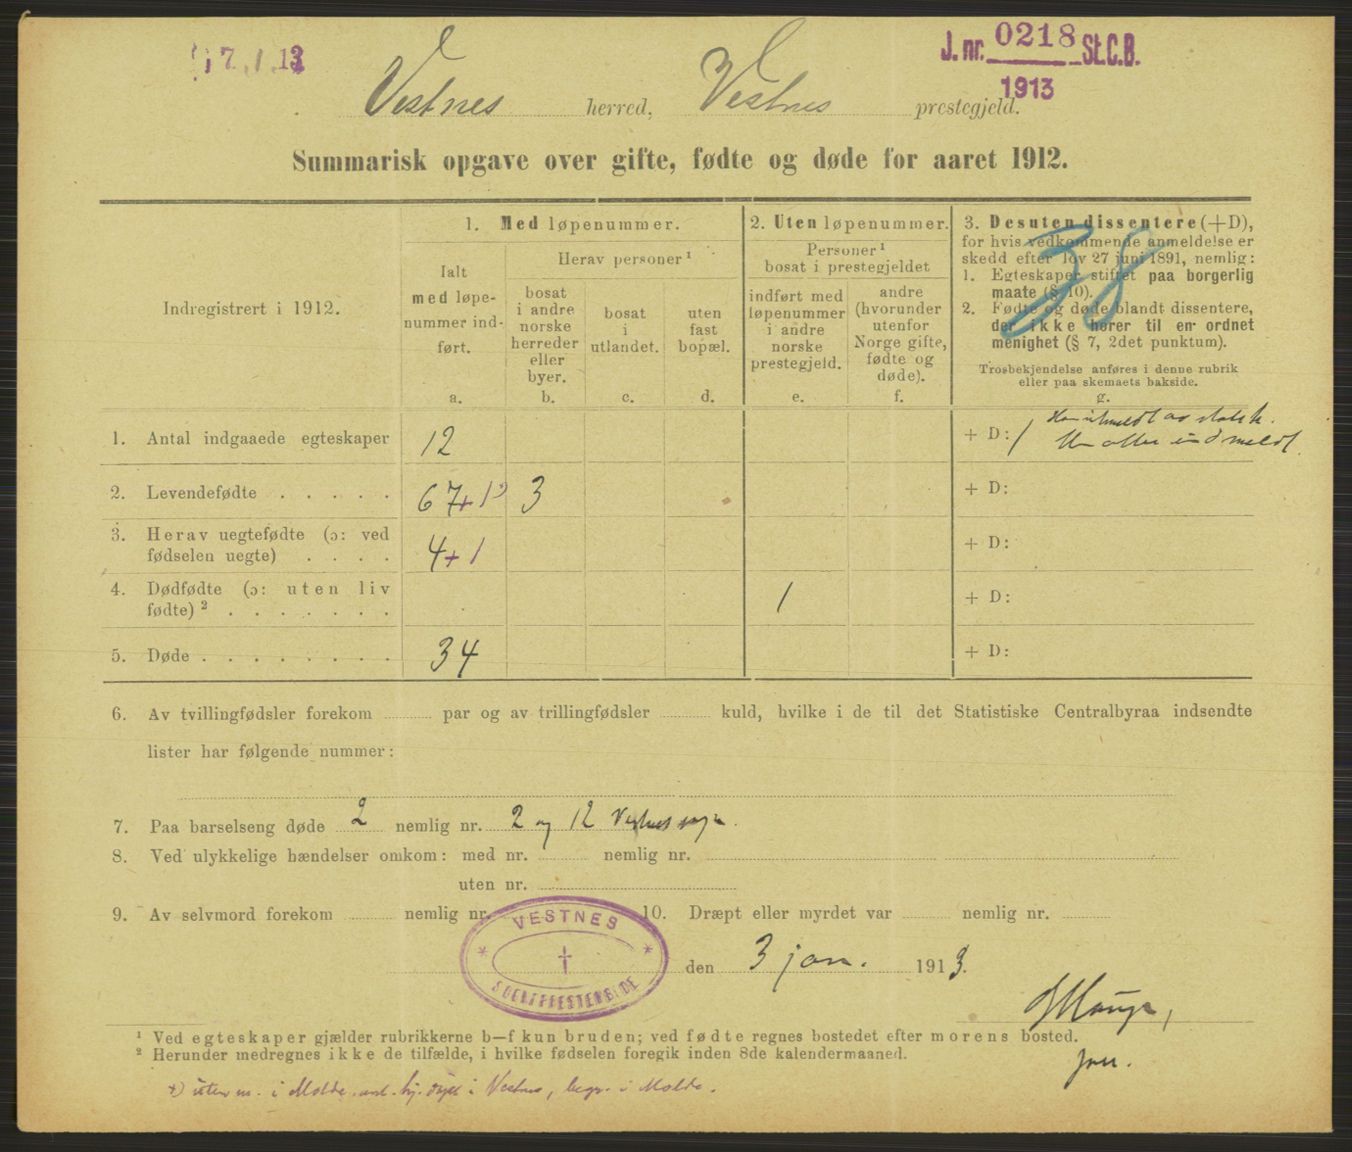 17.1.13
J. nr. 0218 St.C.B.
1913
Vestnes herred, Vestnes prestegjeld.
Summarisk opgave over gifte, fødte og døde for aaret 1912.
Indregistrert i 1912.
1. Med løpenummer.
Ialt med løpe-
nummer ind-
ført.
a.
Herav personer ¹
bosat
i andre
norske
herreder
eller
byer.
b.
bosat
i
utlandet.
c.
uten
fast
bopæl.
d.
2. Uten løpenummer.
Personer ¹
bosat i prestegjeldet
indført med
løpenummer
i andre
norske
prestegjeld.
e.
andre
(hvorunder
utenfor
Norge gifte,
fødte og
døde).
f.
3. Desuten dissentere (+D),
for hvis vedkommende anmeldelse er
skedd efter lov 27 juni 1891, nemlig:
1. Egteskaper stiftet paa borgerlig
maate (§ 10).
2. Fødte og døde blandt dissentere,
der ikke hører til en ordnet
menighet (§ 7, 2det punktum).
Trosbekjendelse anføres i denne rubrik
eller paa skemaets bakside.
g.
38
1. Antal indgaaede egteskaper 12 + D: 1 Han utmeldt av statsk.
meldt
2. Levendefødte . . . . . 67+1 3 + D:
3. Herav uegtefødte (ɔ: ved
fødselen uegte) . . . . 4+1 + D:
4. Dødfødte (ɔ: uten liv
fødte) ² . . . . . . . 1 + D:
5. Døde . . . . . . . . 34 + D:
6. Av tvillingfødsler forekom par og av trillingfødsler kuld, hvilke i de til det Statistiske Centralbyraa indsendte
lister har følgende nummer:
7. Paa barselseng døde 2 nemlig nr. 2 og 12 Vestnes sogn.
8. Ved ulykkelige hændelser omkom: med nr. nemlig nr.
uten nr.
9. Av selvmord forekom nemlig nr. 10. Dræpt eller myrdet var nemlig nr.
VESTNES
SOGNEPRESTEMBEDE
den 3 jan. 1913.
¹ Ved egteskaper gjælder rubrikkerne b—f kun bruden; ved fødte regnes bostedet efter morens bosted.
² Herunder medregnes ikke de tilfælde, i hvilke fødselen foregik inden 8de kalendermaaned.
i Molde i Vestnes, i Molde.